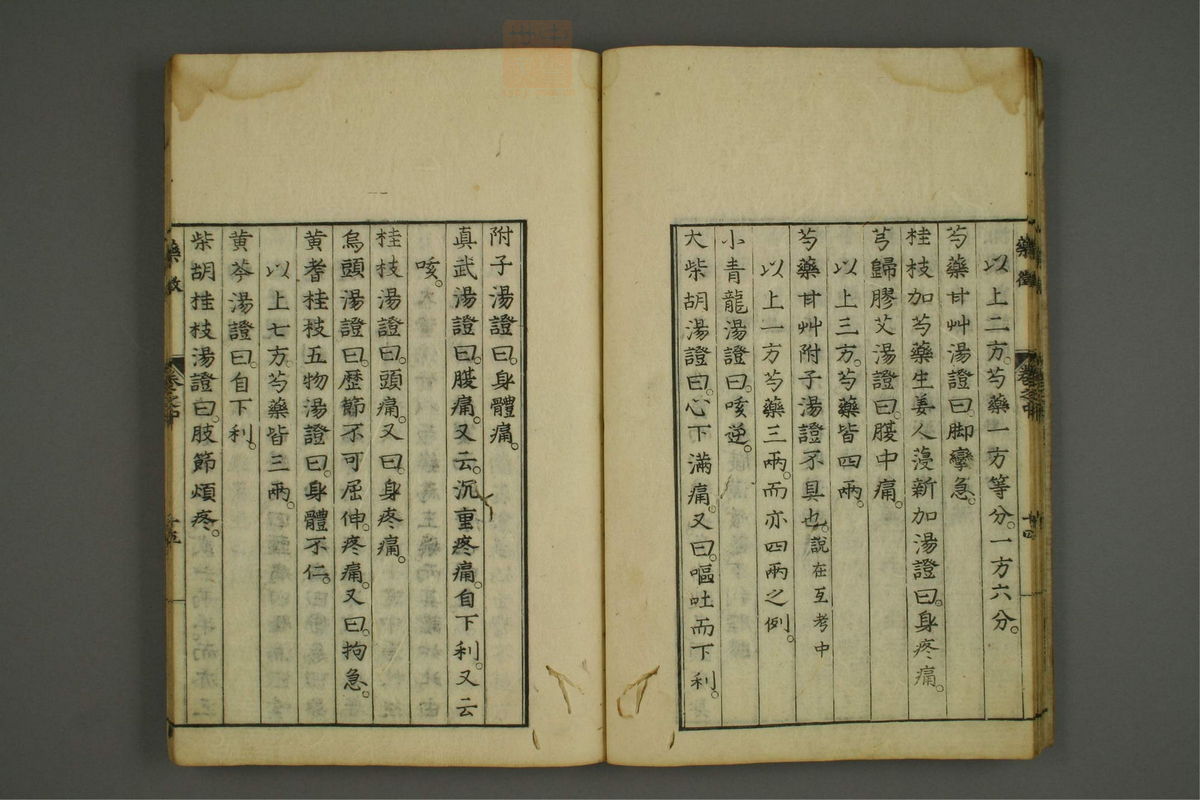 藥徵
卷之中
廿四
以上二方。芍藥一方等分。一方六分。
芍藥甘艸湯證曰。脚攣急。
桂枝加芍藥生姜人蓡新加湯證曰。身疼痛。
芎歸膠艾湯證曰。腹中痛。
以上三方。芍藥皆四兩。
芍藥甘艸附子湯證不具也。說在互考中
以上一方芍藥三兩。而亦四兩之例。
小青龍湯證曰。咳逆。
大柴胡湯證曰。心下滿痛。又曰。嘔吐而下利。
附子湯證曰。身體痛。
眞武湯證曰。腹痛。又云。沉重疼痛。自下利。又云
咳。
桂枝湯證曰。頭痛。又曰。身疼痛。
烏頭湯證曰。歷節不可屈伸。疼痛。又曰。拘急。
黃耆桂枝五物湯證曰。身體不仁。
以上七方。芍藥皆三兩。
黃芩湯證曰。自下利。
柴胡桂枝湯證曰。肢節煩疼。
藥徵
卷之中
廿五